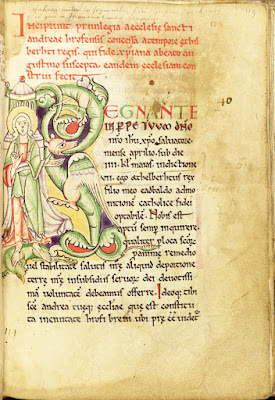 Incipiunt privilegia aecclesię sancti
andreae hrofensis concessa a tempore ethil
berhti regis. qui fide xp̄iana a beato au
gustino suscepta. eandem ęcclesiam con
strui fecit.
REGNANTE
IN PPETUUM DN̄O
n̄ro ih̄u xp̄o saluatore.
mense aprilio. sub die
.iiii. kl̄ maias. indictione
.vii. ego æthelberhtus rex
filio meo eadbaldo admo
nitionē catholice fidei
optabilē. Nobis est
aptū semp inquirere.
qualiter p loca scōꝝ.
p animę remedio
uel stabilitate salutis n̄rę aliquid de portione
terrę n̄rę in subsidiis seruoꝝ dei deuotissi
ma uoluntate debeamus offerre. Ideoq; tibi
sc̄e andrea tuęq; ęccliae quę est constituta
in ciuitate hrofi breui ubi pręē uidet̄